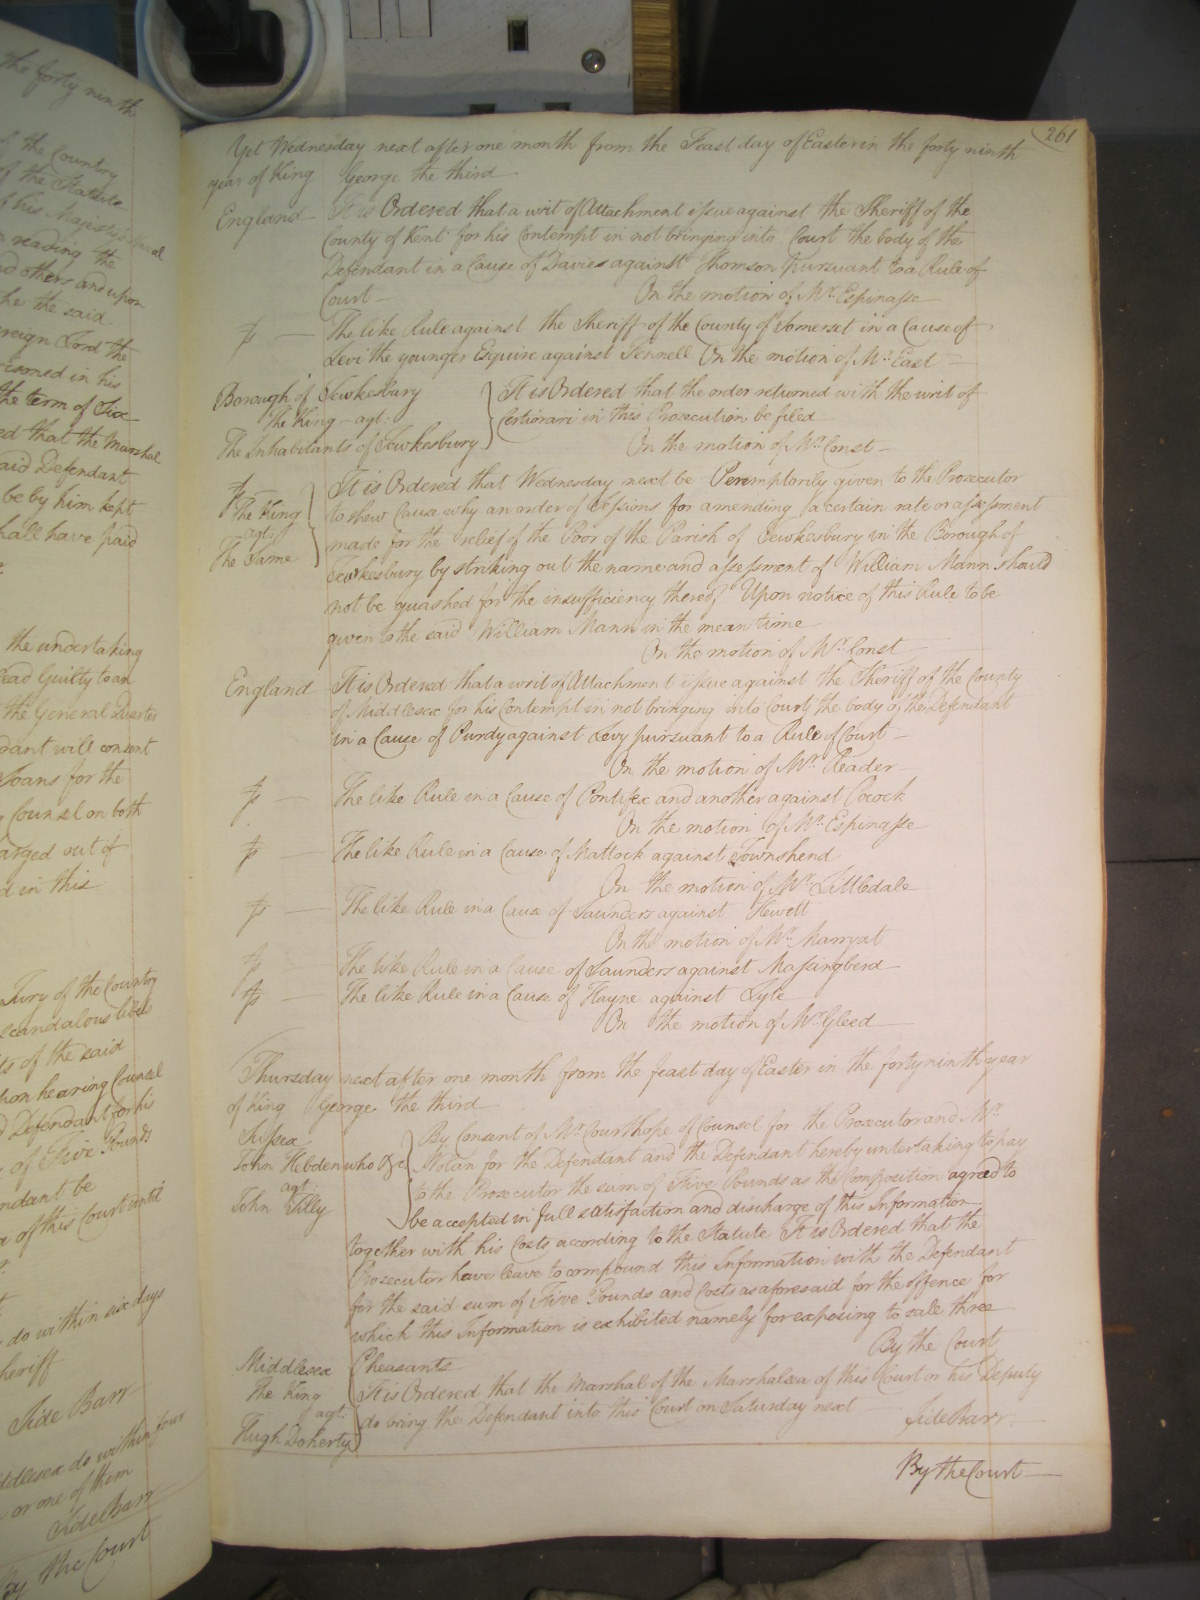 the forty ninth
of the Country
of the Statute
of his Majesty's
reading the
and others and upon
the said
reign Lord the
risoned in his
the term of Six
ed that the Marshal
said Defendant
be by him kept
shall have paid
the undertaking
lead Guilty to an
the General Quarter
dant will consent
Joans for the
Counsel on both
arged out of
d in this
Jury of the Country
scandalous libel
ts of the said
hon hearing Counsel
d Defendant for his
of Five Pounds
ndant be
of this Court until
do within six days
heriff
Side Barr
ddlesex do within four
or one of them
Side Barr
By the Court
261
Yet Wednesday next after one month from the Feast day of Easter in the forty ninth
year of King George the third
England It is Ordered that a writ of Attachment issue against the Sheriff of the
County of Kent for his Contempt in not bringing into Court the body of the
Defendant in a Cause of Davies against Thomson Pursuant to a Rule of
Court
On the motion of Mr. Espinasse
The like Rule against the Sheriff of the County of Somerset in a Cause of
Levi the younger Esquire against Fennell On the motion of Mr. East
Borough of Tewkesbury
The King agt.
The Inhabitants of Tewkesbury
It is Ordered that the order returned with the writ of
Certiorari in this Prosecution be filed
On the motion of Mr. Const
The King
agt.
The Same
It is Ordered that Wednesday next be Peremptorily given to the Prosecutor
to shew Cause why an order of Sessions for amending a certain rate or assessment
made for the relief of the Poor of the Parish of Tewkesbury in the Borough of
Tewkesbury by striking out the name and assessment of William Mann should
not be quashed for the insufficiency thereof Upon notice of this Rule to be
given to the said William Mann in the mean time
On the motion of Mr. Const
England It is Ordered that a writ of Attachment issue against the Sheriff of the County
of Middlesex for his Contempt in not bringing into Court the body of the Defendant
in a Cause of Purdy against Levy pursuant to a Rule of Court
On the motion of Mr. Reader
The like Rule in a Cause of Pontifex and another against Cocock
On the motion of Mr. Espinasse
The like Rule in a Cause of Mattock against Townshend
On the motion of Mr. Littledale
The like Rule in a Cause of Saunders against Hewett
On the motion of Mr. Marryat
The like Rule in a Cause of Saunders against Massingberd
The like Rule in a Cause of Hayne against Lyte
On the motion of Mr. Gleed
Thursday next after one month from the feast day of Easter in the forty ninth year
of King George the third
Sussex
John Hebden who &c.
agt.
John Tilly
By Consent of Mr. Courthope of Counsel for the Prosecutor and Mr.
Nolan for the Defendant and the Defendant hereby undertaking to pay
to the Prosecutor the sum of Five Pounds as the Composition agreed to
be accepted in full satisfaction and discharge of this Information
together with his Costs according to the Statute It is Ordered that the
Prosecutor have leave to compound this Information with the Defendant
for the said sum of Five Pounds and Costs as aforesaid for the offence for
which this Information is exhibited namely for exposing to sale three
Pheasants
By the Court
Middlesex
The King
agt.
Hugh Doherty
It is Ordered that the Marshal of the Marshalsea of this Court or his Deputy
do bring the Defendant into this Court on Saturday next
Side Barr
By the Court